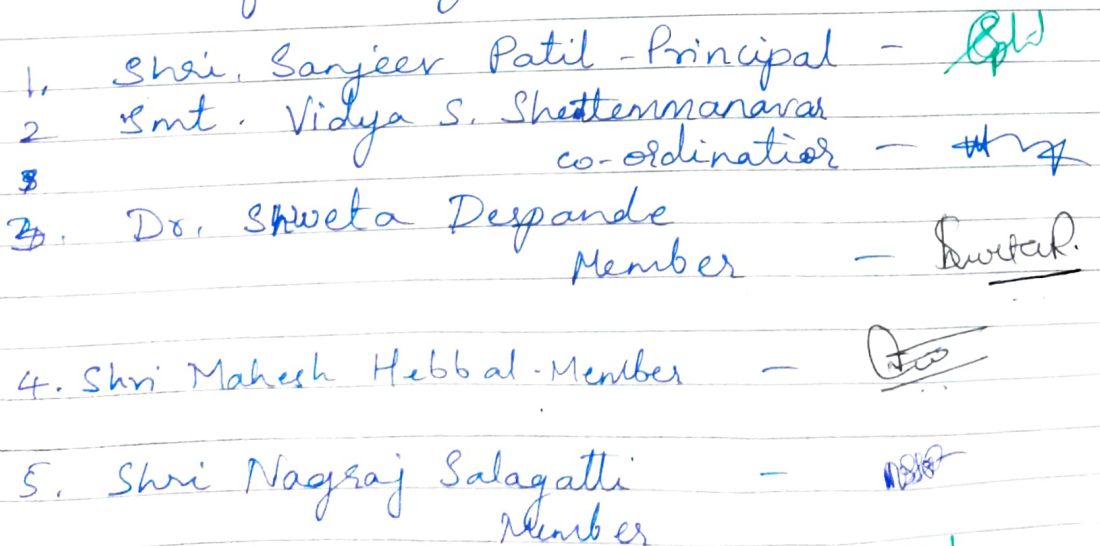 1. Shri. Sanjeev Patil - Principal -
2 Smt. Vidya S. Shettennanavar
co-ordinatior -
3
3. Dr. Shweta Despande
Member - ShwetaR.
4. Shri Mahesh Hebbal - Member -
5. Shri Nagraj Salagatti -
Member